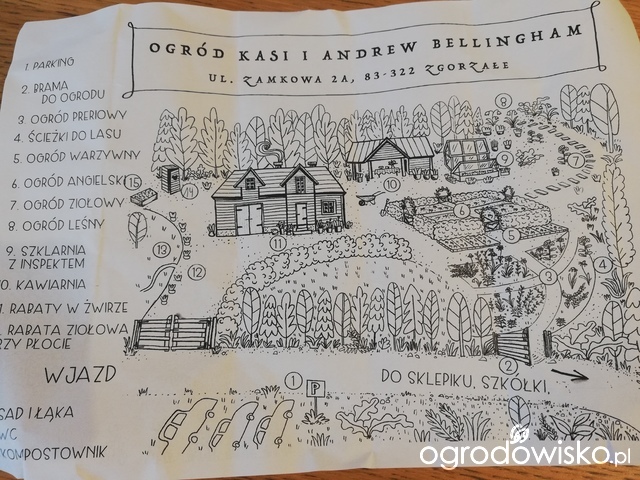 OGRÓD KASI I ANDREW BELLINGHAM
UL. ZAMKOWA 2A, 83-322 ZGORZAŁE
1 PARKING
2. BRAMA
DO OGRODU
3 OGRÓD PRERIOWY
4. ŚCIEŻKI DO LASU
5. OGRÓD WARZYWNY
6 OGRÓD ANGIELSKI
7 OGRÓD ZIOŁOWY
8 OGRÓD LEŚNY
9. SZKLARNIA
Z INSPEKTEM
0. KAWIARNIA
1. RABATY W ŻWIRZE
. RABATA ZIOŁOWA
RZY PŁOCIE
WJAZD
SAD I ŁĄKA
WC
KOMPOSTOWNIK
8
7
9
10
15
14
6
5
11
13
12
3
4
2
1
P
DO SKLEPIKU, SZKÓŁKI,
ogrodowisko.pl